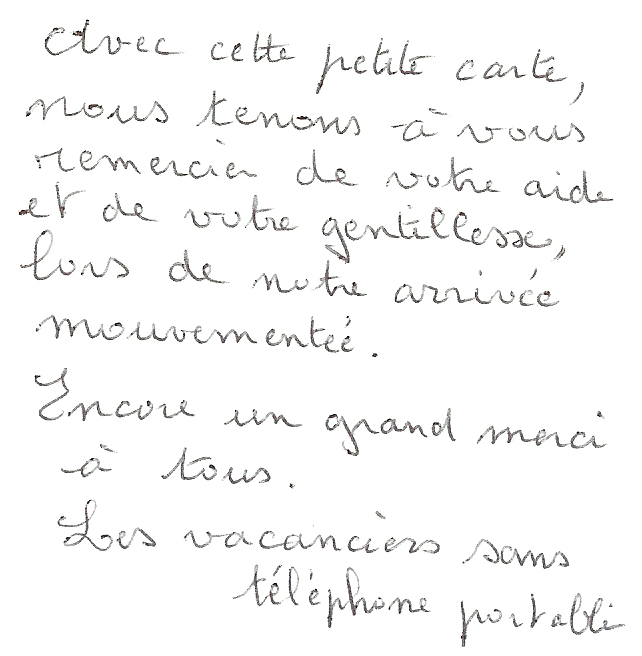 Avec cette petite carte,
nous tenons à vous
remercier de votre aide
et de votre gentillesse,
lors de notre arrivée
mouvementeé.
Encore un grand merci
à tous.
Les vacanciers sans
téléphone portable